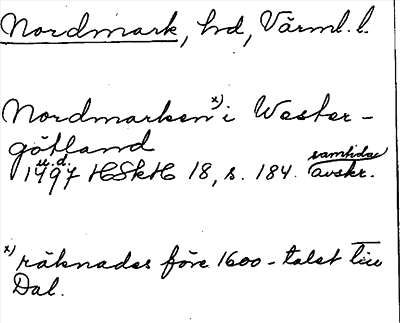 Nordmark, hd, Värml. l.
Nordmarken x) i Wester-
götland
u.d.
1497 HSkH 18, s. 184. samtida avskr.
x) räknades före 1600-talet till
Dal.